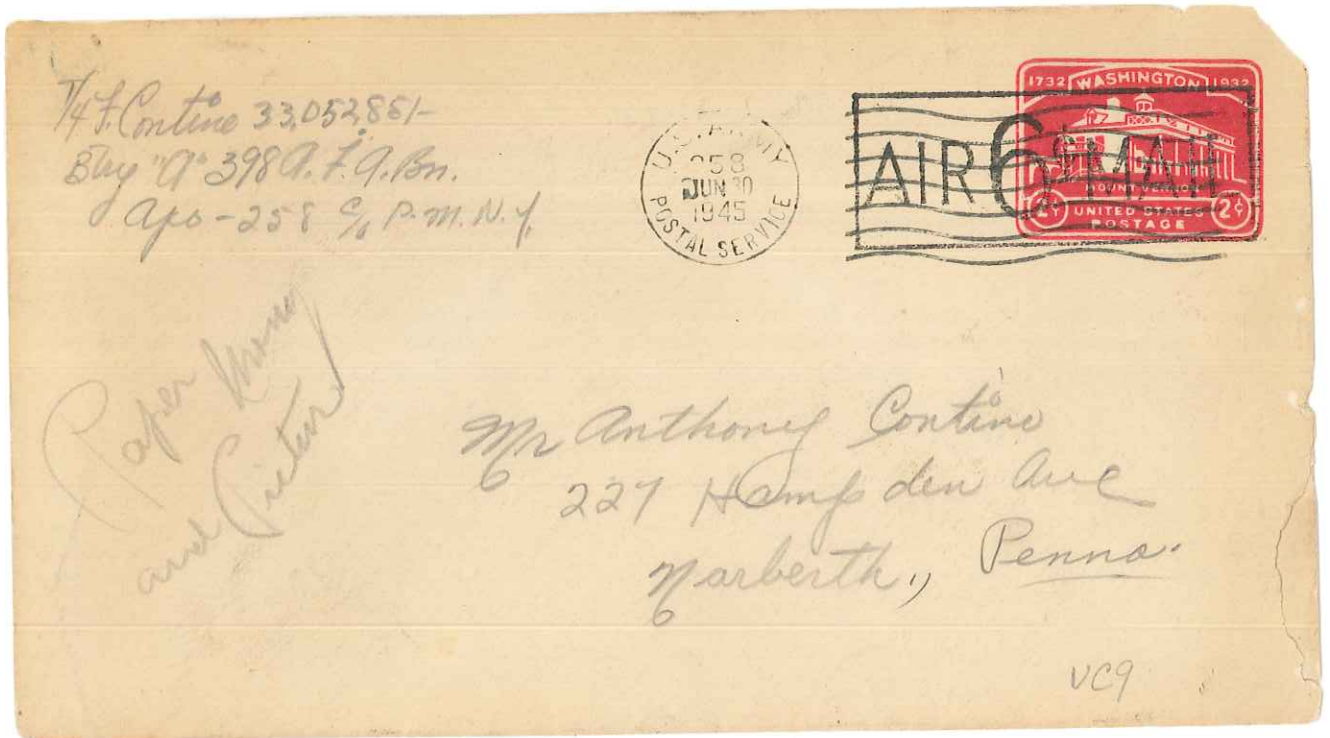 T/4 F. Contino 33,052,861-
Btry "A" 398 A. F. A. Bn.
Apo - 258 c/o P. M. N. Y.
U.S. ARMY
258
JUN 30
1945
POSTAL SERVICE
AIR 6¢ MAIL
1732 WASHINGTON 1932
MOUNT VERNON
2¢ UNITED STATES 2¢
POSTAGE
Paper Money
and Picture
Mr Anthony Contino
227 Hampden Ave
Narberth, Penna.
VC9